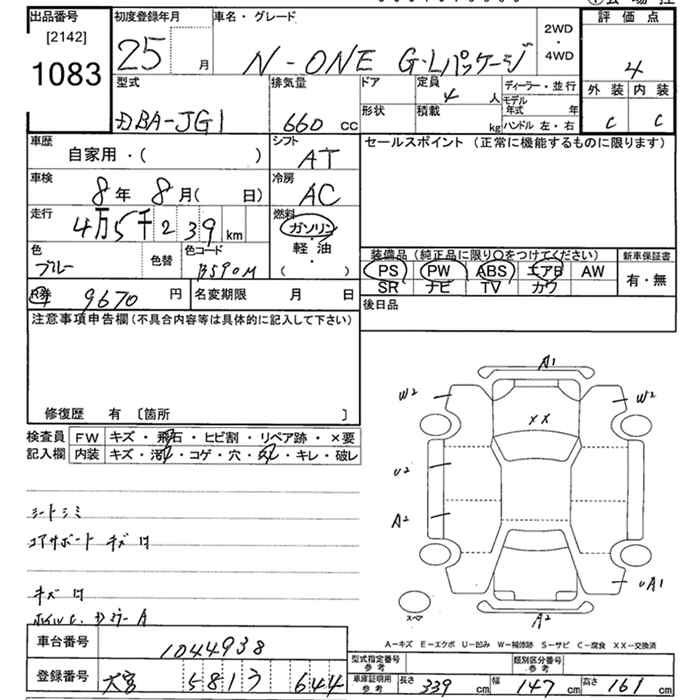 出品番号 初度登録年月 車名・グレード 2WD ・ 4WD 評価点
[2142]
1083 25 月 N-ONE G・Lパッケージ 4
型式 排気量 ドア 定員 4 人 ディーラー・並行 外装 内装
DBA-JG1 660 cc 形状 積載 kg モデル年式 年 ハンドル 左・右 C C
車歴 シフト セールスポイント (正常に機能するものに限ります)
自家用・( ) AT
車検 冷房
8年 8月( 日) AC
走行 燃料
4万5千239 km ガソリン
色 色替 色コード 軽油 装備品 (純正品に限り○をつけてください) 新車保証書
ブルー B590M ( ) PS PW ABS エアB AW 有・無
SR ナビ TV カワ
R券 9670 円 名変期限 月 日 後日品
注意事項申告欄 (不具合内容等は具体的に記入して下さい)
修復歴 有 [箇所 ]
検査員 FW キズ・飛石・ヒビ割・リペア跡・×要
記入欄 内装 キズ・汚れ・コゲ・穴・スレ・キレ・破レ
A1
W2 W2
XX
U2
A2
UA1
スペア
A2
シートシミ
コアサポート キズ
キズ
ホイルC. Dミラー A
A-キズ E-エクボ U-凹み W-補修跡 S-サビ C-腐食 XX-交換済
車台番号 1044938
型式指定番号 参考 類別区分番号 参考
登録番号 大宮 581 ワ 644
車庫証明用 参考 長さ 339 cm 幅 147 cm 高さ 161 cm